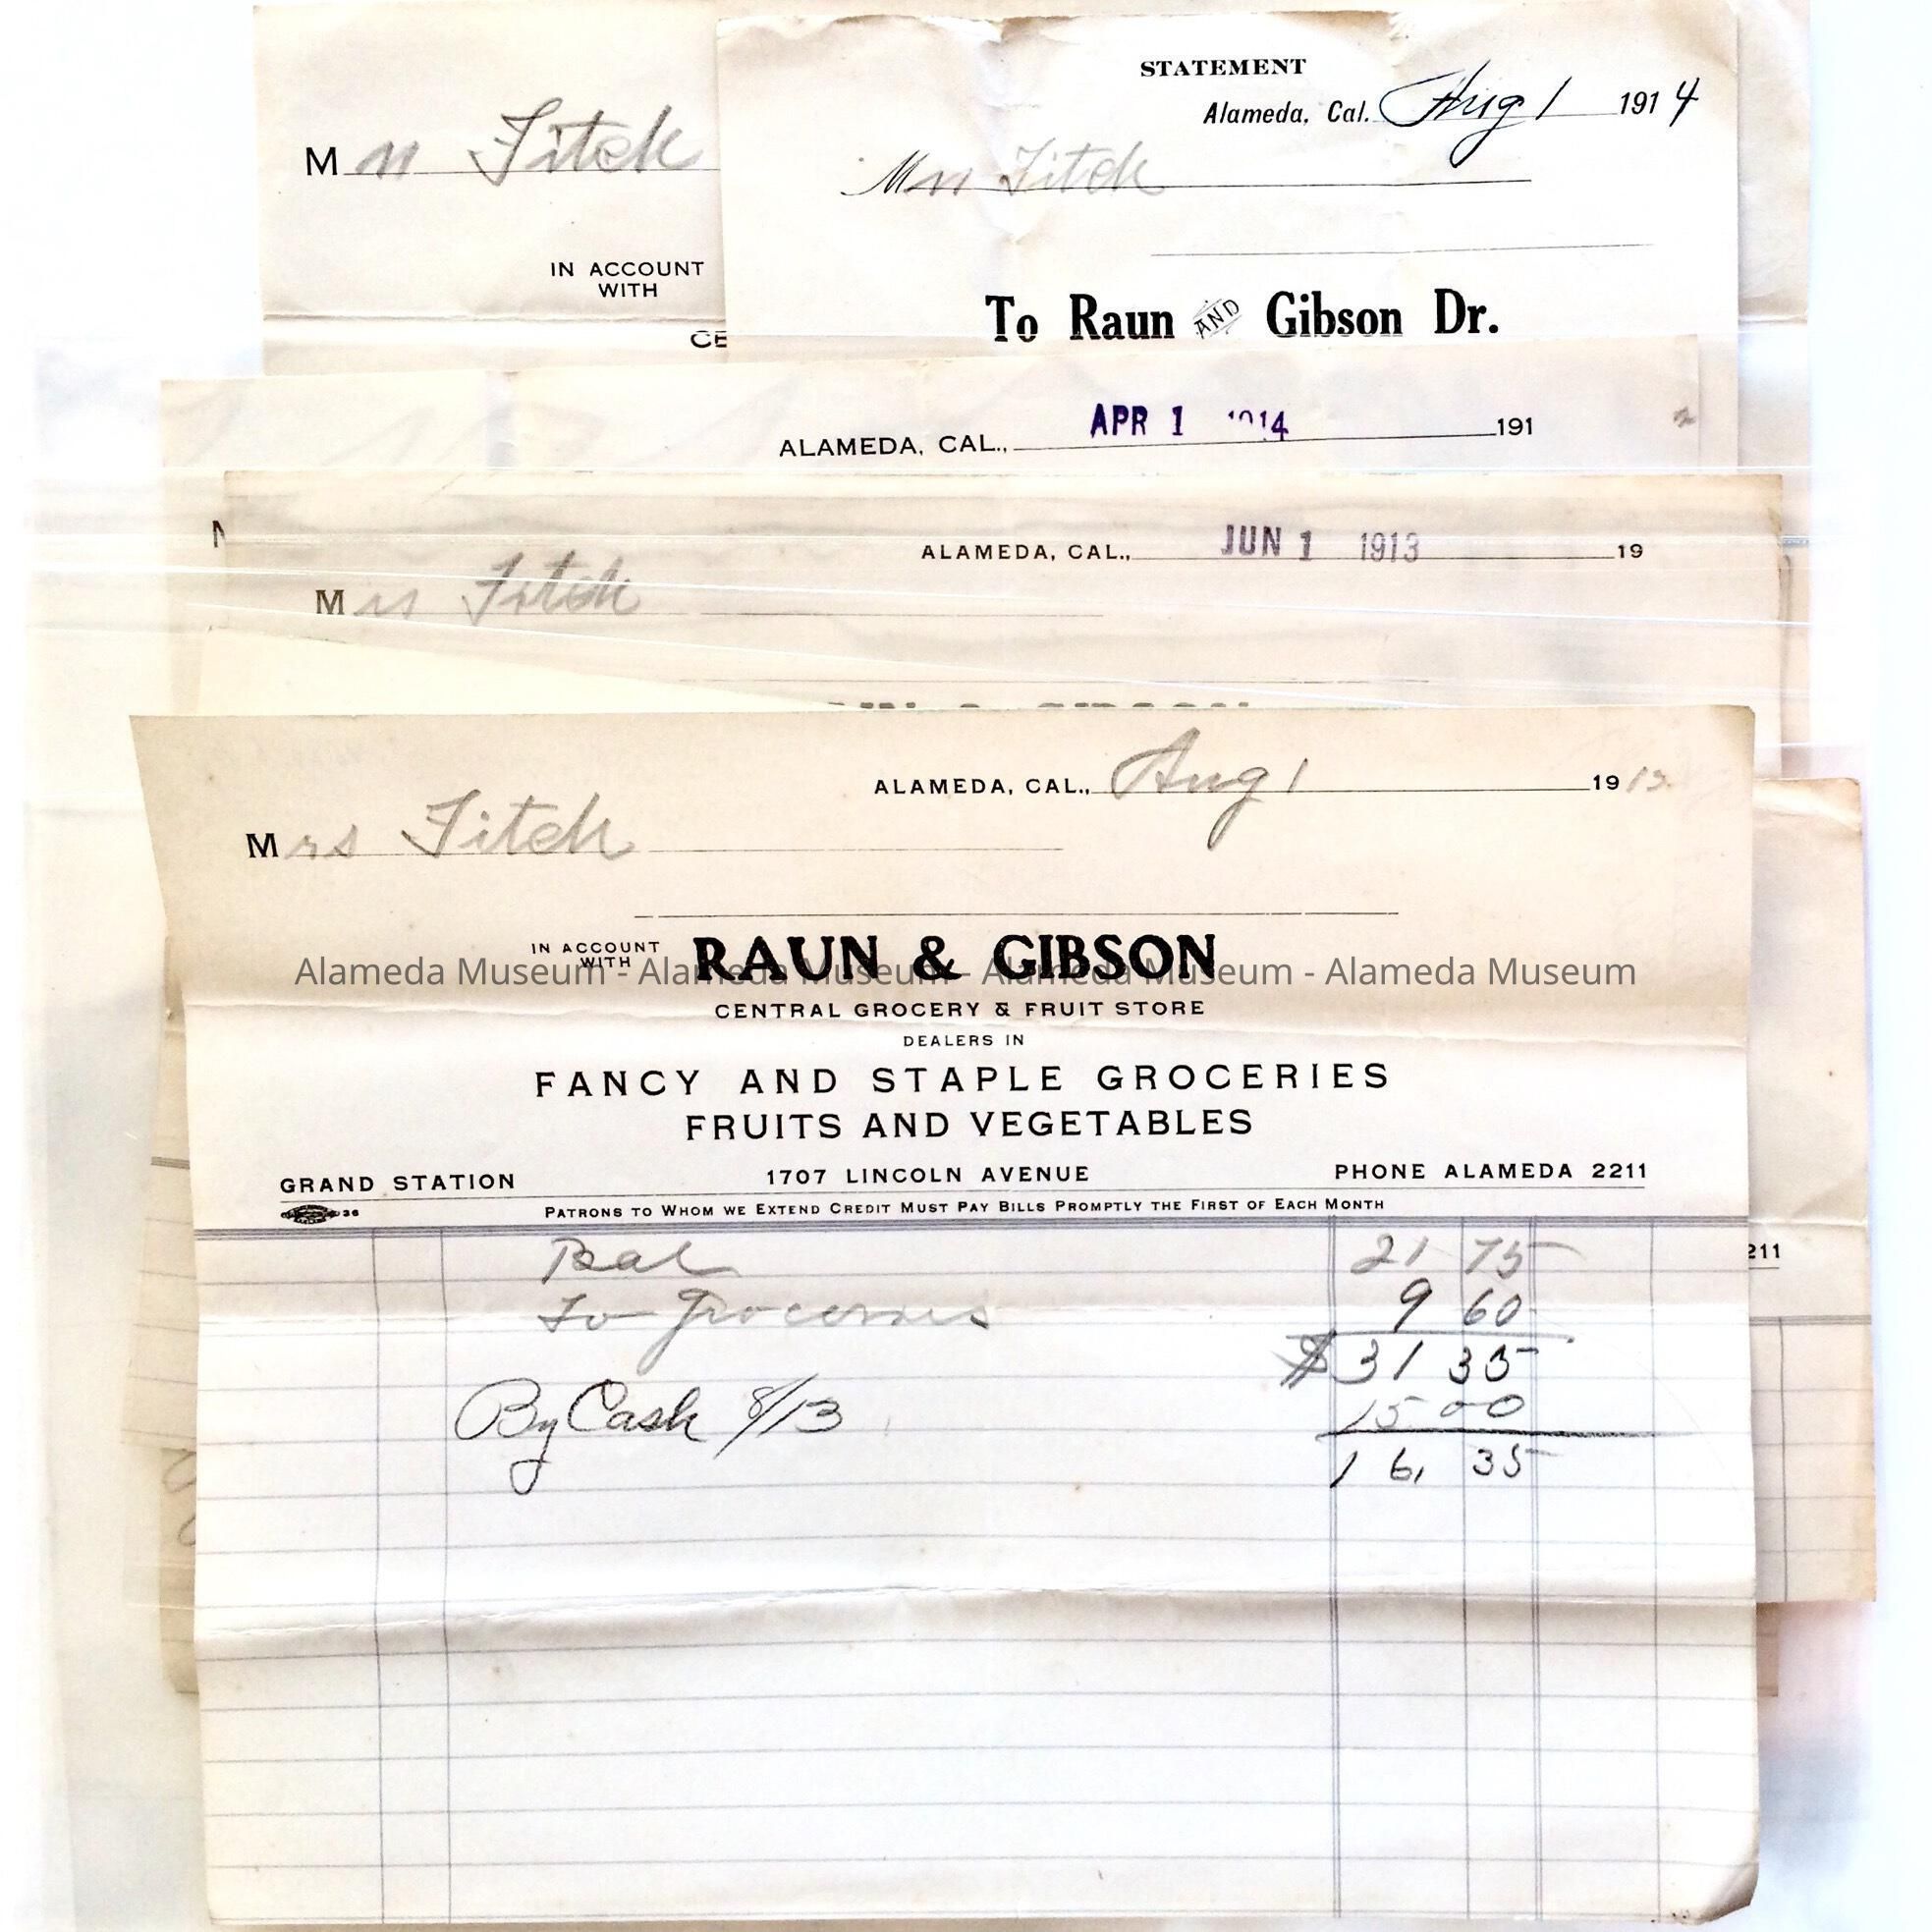 STATEMENT
Alameda, Cal. Aug 1 1914
Mrs Fitch
Mrs Fitch
IN ACCOUNT
WITH
To Raun AND Gibson Dr.
CE
ALAMEDA, CAL., APR 1 1914 191
ALAMEDA, CAL., JUN 1 1913 19
Mrs Fitch
ALAMEDA, CAL., Aug 1 19
Mrs Fitch
IN ACCOUNT
WITH
RAUN & GIBSON
Alameda Museum - Alameda Museum - Alameda Museum - Alameda Museum
CENTRAL GROCERY & FRUIT STORE
DEALERS IN
FANCY AND STAPLE GROCERIES
FRUITS AND VEGETABLES
GRAND STATION 1707 LINCOLN AVENUE PHONE ALAMEDA 2211
36 PATRONS TO WHOM WE EXTEND CREDIT MUST PAY BILLS PROMPTLY THE FIRST OF EACH MONTH
Bal 21 75
211
To Groceries 9 60
$31 35
By Cash 8/13 15 00
16 35